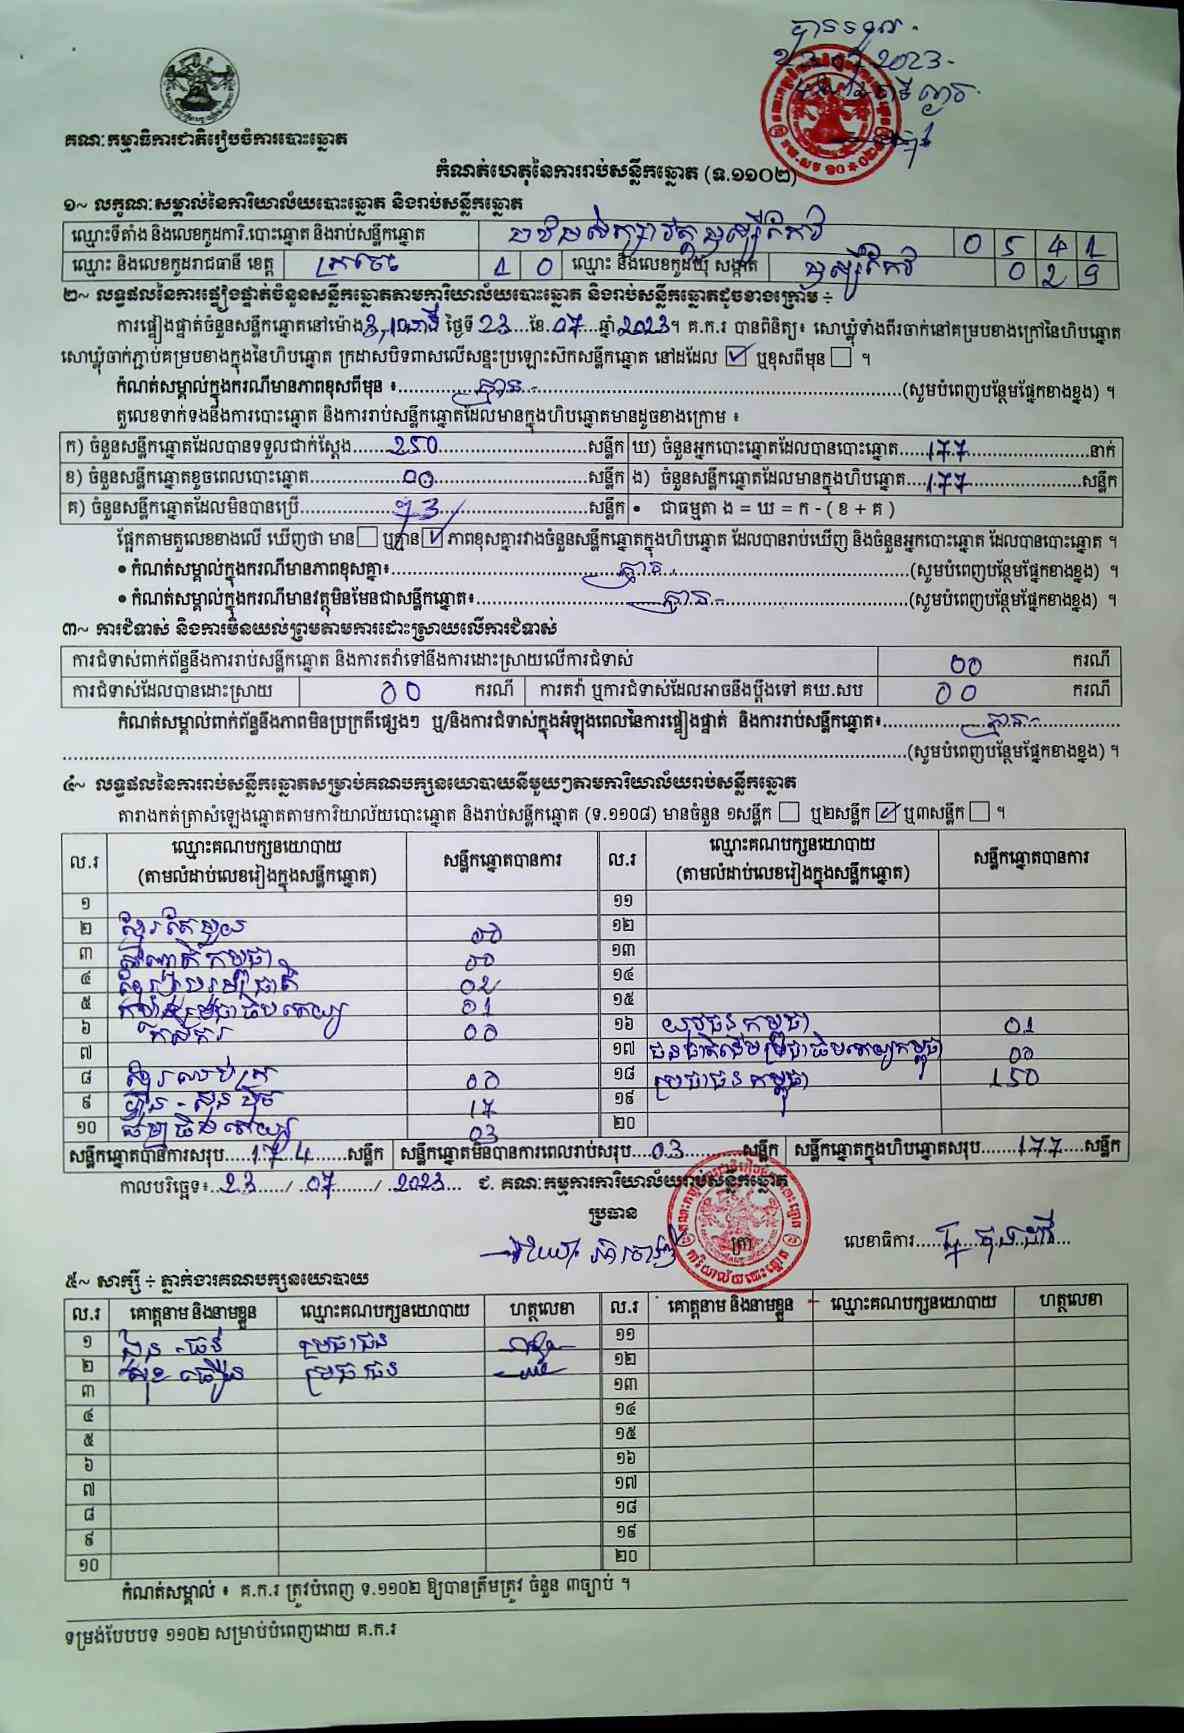 បានទទួល
23.07.2023
គណៈកម្មាធិការជាតិរៀបចំការបោះឆ្នោត
កំណត់ហេតុនៃការរាប់សន្លឹកឆ្នោត (ទ.១១០២)
១~ លក្ខណៈសម្គាល់នៃការិយាល័យបោះឆ្នោត និងរាប់សន្លឹកឆ្នោត
ឈ្មោះទីតាំង និងលេខកូដការិ.បោះឆ្នោត និងរាប់សន្លឹកឆ្នោត 0 5 4 1
ឈ្មោះ និងលេខកូដរាជធានី ខេត្ត ក្រចេះ 1 0 ឈ្មោះ និងលេខកូដឃុំ សង្កាត់ 0 2 9
២~ លទ្ធផលនៃការផ្ទៀងផ្ទាត់ចំនួនសន្លឹកឆ្នោតតាមការិយាល័យបោះឆ្នោត និងរាប់សន្លឹកឆ្នោតដូចខាងក្រោម ÷
ការផ្ទៀងផ្ទាត់ចំនួនសន្លឹកឆ្នោតនៅម៉ោង 3,10នាទី ថ្ងៃទី 23 ខែ 07 ឆ្នាំ 2023។ គ.ក.រ បានពិនិត្យ៖ សោឃ្លុំទាំងពីរចាក់នៅគម្របខាងក្រៅនៃហិបឆ្នោត
សោឃ្លុំចាក់ភ្ជាប់គម្របខាងក្នុងនៃហិបឆ្នោត ក្រដាសបិទពាសលើសន្ទះប្រឡោះស៊កសន្លឹកឆ្នោត នៅដដែល ☑ ឬខុសពីមុន ☐ ។
កំណត់សម្គាល់ក្នុងករណីមានភាពខុសពីមុន ៖ គ្មាន (សូមបំពេញបន្ថែមផ្នែកខាងខ្នង) ។
តួលេខទាក់ទងនឹងការបោះឆ្នោត និងការរាប់សន្លឹកឆ្នោតដែលមានក្នុងហិបឆ្នោតមានដូចខាងក្រោម ៖
ក) ចំនួនសន្លឹកឆ្នោតដែលបានទទួលជាក់ស្តែង 250 សន្លឹក ឃ) ចំនួនអ្នកបោះឆ្នោតដែលបានបោះឆ្នោត 177 នាក់
ខ) ចំនួនសន្លឹកឆ្នោតខូចពេលបោះឆ្នោត 00 សន្លឹក ង) ចំនួនសន្លឹកឆ្នោតដែលមានក្នុងហិបឆ្នោត 177 សន្លឹក
គ) ចំនួនសន្លឹកឆ្នោតដែលមិនបានប្រើ 73 សន្លឹក • ជាធម្មតា ង = ឃ = ក - ( ខ + គ )
ផ្អែកតាមតួលេខខាងលើ ឃើញថា មាន ☐ ឬគ្មាន ☑ ភាពខុសគ្នារវាងចំនួនសន្លឹកឆ្នោតក្នុងហិបឆ្នោត ដែលបានរាប់ឃើញ និងចំនួនអ្នកបោះឆ្នោត ដែលបានបោះឆ្នោត ។
• កំណត់សម្គាល់ក្នុងករណីមានភាពខុសគ្នា៖ គ្មាន (សូមបំពេញបន្ថែមផ្នែកខាងខ្នង) ។
• កំណត់សម្គាល់ក្នុងករណីមានវត្ថុមិនមែនជាសន្លឹកឆ្នោត៖ គ្មាន (សូមបំពេញបន្ថែមផ្នែកខាងខ្នង) ។
៣~ ការជំទាស់ និងការមិនយល់ព្រមតាមការដោះស្រាយលើការជំទាស់
ការជំទាស់ពាក់ព័ន្ធនឹងការរាប់សន្លឹកឆ្នោត និងការតវ៉ាទៅនឹងការដោះស្រាយលើការជំទាស់ 00 ករណី
ការជំទាស់ដែលបានដោះស្រាយ 00 ករណី ការតវ៉ា ឬការជំទាស់ដែលអាចនឹងប្តឹងទៅ គឃ.សប 00 ករណី
កំណត់សម្គាល់ពាក់ព័ន្ធនឹងភាពមិនប្រក្រតីផ្សេងៗ ឬ/និងការជំទាស់ក្នុងអំឡុងពេលនៃការផ្ទៀងផ្ទាត់ និងការរាប់សន្លឹកឆ្នោត៖ គ្មាន
(សូមបំពេញបន្ថែមផ្នែកខាងខ្នង) ។
៤~ លទ្ធផលនៃការរាប់សន្លឹកឆ្នោតសម្រាប់គណបក្សនយោបាយនីមួយៗតាមការិយាល័យរាប់សន្លឹកឆ្នោត
តារាងកត់ត្រាសំឡេងឆ្នោតតាមការិយាល័យបោះឆ្នោត និងរាប់សន្លឹកឆ្នោត (ទ.១១០៨) មានចំនួន ១សន្លឹក ☐ ឬ២សន្លឹក ☑ ឬ៣សន្លឹក ☐ ។
ល.រ ឈ្មោះគណបក្សនយោបាយ (តាមលំដាប់លេខរៀងក្នុងសន្លឹកឆ្នោត) សន្លឹកឆ្នោតបានការ ល.រ ឈ្មោះគណបក្សនយោបាយ (តាមលំដាប់លេខរៀងក្នុងសន្លឹកឆ្នោត) សន្លឹកឆ្នោតបានការ
១ ១១
២ ខ្មែរតែមួយ 00 ១២
៣ កម្ពុជា 00 ១៣
៤ 02 ១៤
៥ 01 ១៥
៦ កសិករ 00 ១៦ យុវជនកម្ពុជា 01
៧ ១៧ ជនជាតិដើមប្រជាធិបតេយ្យកម្ពុជា 00
៨ ខ្មែរឈប់ក្រ 00 ១៨ ប្រជាជនកម្ពុជា 150
៩ ហ៊្វុនស៊ិនប៉ិច 17 ១៩
១០ 03 ២០
សន្លឹកឆ្នោតបានការសរុប 174 សន្លឹក សន្លឹកឆ្នោតមិនបានការពេលរាប់សរុប 03 សន្លឹក សន្លឹកឆ្នោតក្នុងហិបឆ្នោតសរុប 177 សន្លឹក
កាលបរិច្ឆេទ៖ 23 / 07 / 2023 ជ. គណៈកម្មការការិយាល័យរាប់សន្លឹកឆ្នោត
ប្រធាន
លេខាធិការ
៥~ សាក្សី ÷ ភ្នាក់ងារគណបក្សនយោបាយ
ល.រ គោត្តនាម និងនាមខ្លួន ឈ្មោះគណបក្សនយោបាយ ហត្ថលេខា ល.រ គោត្តនាម និងនាមខ្លួន ឈ្មោះគណបក្សនយោបាយ ហត្ថលេខា
១ ប្រជាជន ១១
២ ប្រជាជន ១២
៣ ១៣
៤ ១៤
៥ ១៥
៦ ១៦
៧ ១៧
៨ ១៨
៩ ១៩
១០ ២០
កំណត់សម្គាល់ ៖ គ.ក.រ ត្រូវបំពេញ ទ.១១០២ ឱ្យបានត្រឹមត្រូវ ចំនួន ៣ច្បាប់ ។
ទម្រង់បែបបទ ១១០២ សម្រាប់បំពេញដោយ គ.ក.រ